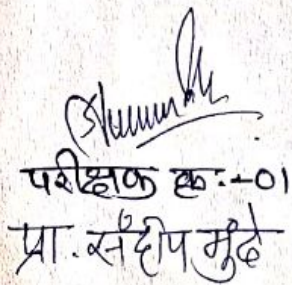 परीक्षक क्र.-01
प्रा. संदीप मुंढे